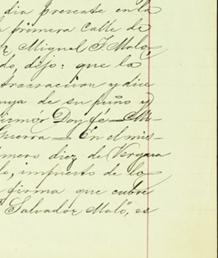 dia presente en la
primera Calle de
Miguel S. Malo,
do, dijo: que la
trasaccion y dice
suya de su puño y
firmar Doy fé — Mi
Guerra — En el mis-
número diez de Vergara
impuesto de lo
firma que cubre
Salvador Malo, es